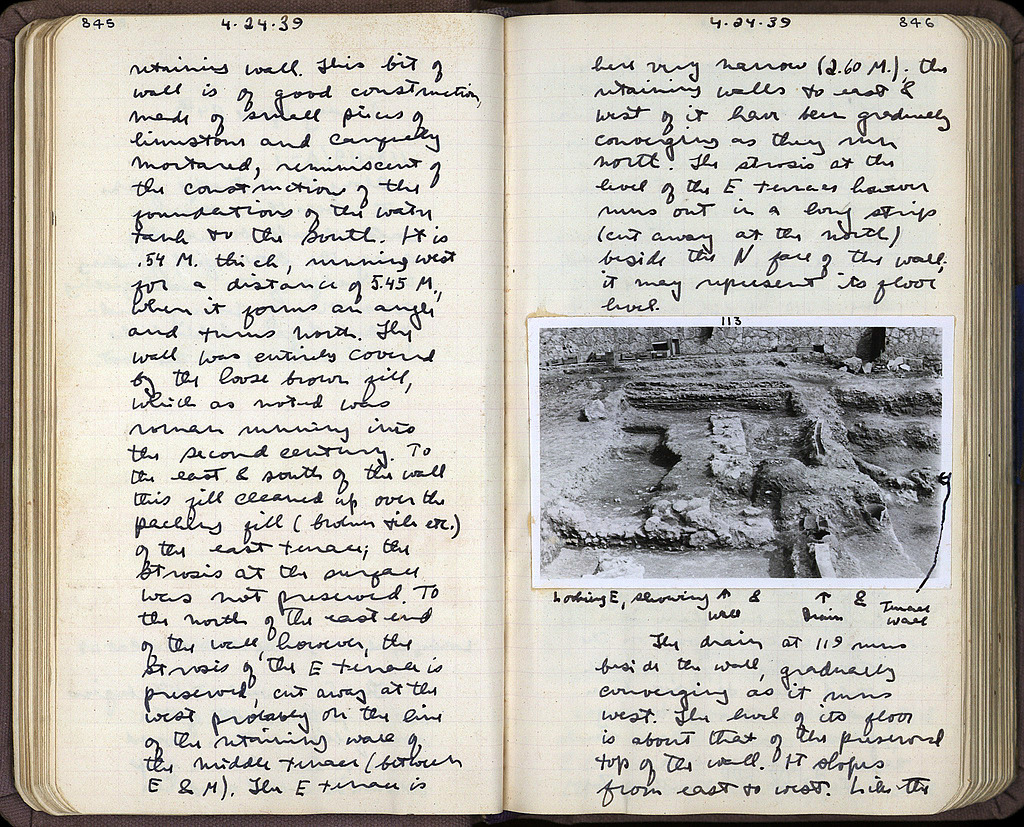 845
4.24.39
retaining wall. This bit of
wall is of good construction,
made of small pieces of
limestone and carefully
mortared, reminiscent of
the construction of the
foundations of the water
tank to the south. It is
.54 M. thick, running west
for a distance of 5.45 M,
when it forms an angle
and turns north. The
wall was entirely covered
by the loose brown fill,
which as noted was
roman running into
the second century. To
the east & south of the wall
this fill cleaned up over the
packing fill (broken tile etc.)
of the east terrace; the
strosis at the surface
was not preserved. To
the north of the east end
of the wall, however, the
strosis of the E terrace is
preserved, cut away at the
west probably on the line
of the retaining wall of
the middle terrace (between
E & M). The E terrace is
4.24.39
846
here very narrow (2.60 M.). The
retaining walls to east &
west of it have been gradually
converging as they run
north. The strosis at the
level of the E terrace however
runs out in a long strip
(cut away at the north)
beside the N face of the wall;
it may represent its floor
level.
113
Looking E, showing ↑ & ↑ &
wall Drain Terrace
wall
The drain at 119 runs
beside the wall, gradually
converging as it runs
west. The level of its floor
is about that of the preserved
top of the wall. It slopes
from east to west. Like the